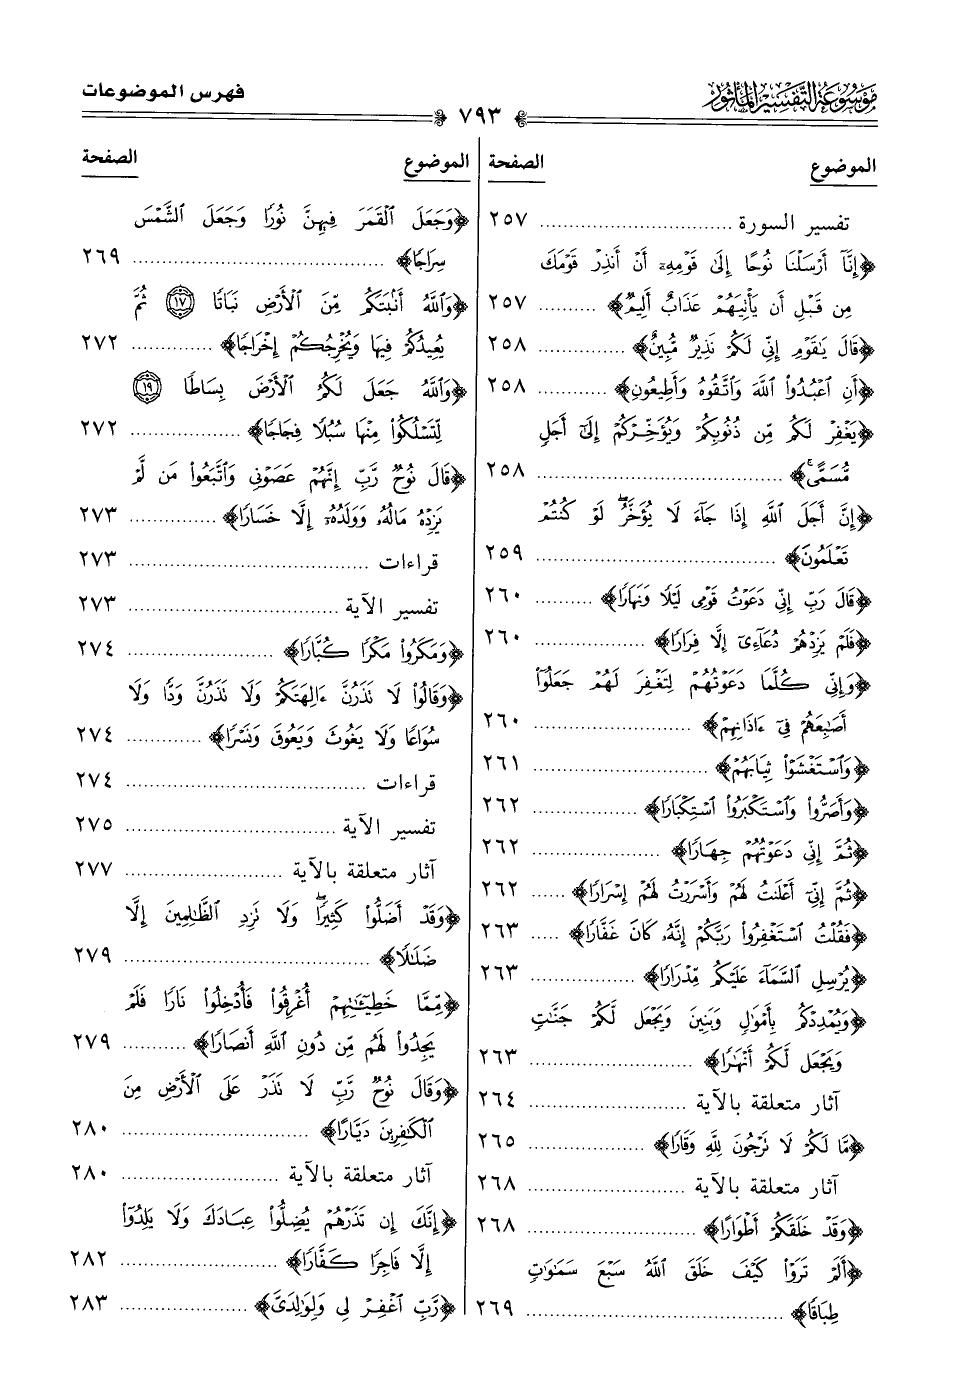 موسوعة التفسير المأثور
فهرس الموضوعات
٧٩٣
الموضوع الصفحة
تفسير السورة ................................ ٢٥٧
﴿إِنَّآ أَرۡسَلۡنَا نُوحًا إِلَىٰ قَوۡمِهِۦٓ أَنۡ أَنذِرۡ قَوۡمَكَ
مِن قَبۡلِ أَن يَأۡتِيَهُمۡ عَذَابٌ أَلِيمٌ﴾ .......... ٢٥٧
﴿قَالَ يَٰقَوۡمِ إِنِّي لَكُمۡ نَذِيرٌ مُّبِينٌ﴾ ............... ٢٥٨
﴿أَنِ ٱعۡبُدُواْ ٱللَّهَ وَٱتَّقُوهُ وَأَطِيعُونِ﴾ ............ ٢٥٨
﴿يَغۡفِرۡ لَكُم مِّن ذُنُوبِكُمۡ وَيُؤَخِّرۡكُمۡ إِلَىٰٓ أَجَلٍ
مُّسَمًّىۚ﴾ ........................................ ٢٥٨
﴿إِنَّ أَجَلَ ٱللَّهِ إِذَا جَآءَ لَا يُؤَخَّرُۖ لَوۡ كُنتُمۡ
تَعۡلَمُونَ﴾ ........................................ ٢٥٩
﴿قَالَ رَبِّ إِنِّي دَعَوۡتُ قَوۡمِي لَيۡلًا وَنَهَارًا﴾ .......... ٢٦٠
﴿فَلَمۡ يَزِدۡهُمۡ دُعَآءِيٓ إِلَّا فِرَارًا﴾ .................. ٢٦٠
﴿وَإِنِّي كُلَّمَا دَعَوۡتُهُمۡ لِتَغۡفِرَ لَهُمۡ جَعَلُوٓاْ
أَصَٰبِعَهُمۡ فِيٓ ءَاذَانِهِمۡ﴾ .......................... ٢٦٠
﴿وَٱسۡتَغۡشَوۡاْ ثِيَابَهُمۡ﴾ ............................. ٢٦١
﴿وَأَصَرُّواْ وَٱسۡتَكۡبَرُواْ ٱسۡتِكۡبَارًا﴾ ................. ٢٦٢
﴿ثُمَّ إِنِّي دَعَوۡتُهُمۡ جِهَارًا﴾ ...................... ٢٦٢
﴿ثُمَّ إِنِّيٓ أَعۡلَنتُ لَهُمۡ وَأَسۡرَرۡتُ لَهُمۡ إِسۡرَارًا﴾ ...... ٢٦٢
﴿فَقُلۡتُ ٱسۡتَغۡفِرُواْ رَبَّكُمۡ إِنَّهُۥ كَانَ غَفَّارًا﴾ ..... ٢٦٣
﴿يُرۡسِلِ ٱلسَّمَآءَ عَلَيۡكُم مِّدۡرَارًا﴾ .................. ٢٦٣
﴿وَيُمۡدِدۡكُم بِأَمۡوَٰلٍ وَبَنِينَ وَيَجۡعَل لَّكُمۡ جَنَّٰتٍ
وَيَجۡعَل لَّكُمۡ أَنۡهَٰرًا﴾ ........................... ٢٦٣
آثار متعلقة بالآية ........................... ٢٦٤
﴿مَّا لَكُمۡ لَا تَرۡجُونَ لِلَّهِ وَقَارًا﴾ .................... ٢٦٥
آثار متعلقة بالآية ........................... ٢٦٨
﴿وَقَدۡ خَلَقَكُمۡ أَطۡوَارًا﴾ ............................ ٢٦٨
﴿أَلَمۡ تَرَوۡاْ كَيۡفَ خَلَقَ ٱللَّهُ سَبۡعَ سَمَٰوَٰتٍ
طِبَاقًا﴾ ........................................... ٢٦٩
الموضوع الصفحة
﴿وَجَعَلَ ٱلۡقَمَرَ فِيهِنَّ نُورًا وَجَعَلَ ٱلشَّمۡسَ
سِرَاجًا﴾ .......................................... ٢٦٩
﴿وَٱللَّهُ أَنۢبَتَكُم مِّنَ ٱلۡأَرۡضِ نَبَاتًا ١٧ ثُمَّ
يُعِيدُكُمۡ فِيهَا وَيُخۡرِجُكُمۡ إِخۡرَاجًا﴾ ............. ٢٧٢
﴿وَٱللَّهُ جَعَلَ لَكُمُ ٱلۡأَرۡضَ بِسَاطًا ١٩
لِّتَسۡلُكُواْ مِنۡهَا سُبُلًا فِجَاجًا﴾ ................... ٢٧٢
﴿قَالَ نُوحٌ رَّبِّ إِنَّهُمۡ عَصَوۡنِي وَٱتَّبَعُواْ مَن لَّمۡ
يَزِدۡهُ مَالُهُۥ وَوَلَدُهُۥٓ إِلَّا خَسَارًا﴾ ............... ٢٧٣
قراءات ........................................ ٢٧٣
تفسير الآية ................................... ٢٧٣
﴿وَمَكَرُواْ مَكۡرًا كُبَّارًا﴾ ......................... ٢٧٤
﴿وَقَالُواْ لَا تَذَرُنَّ ءَالِهَتَكُمۡ وَلَا تَذَرُنَّ وَدًّا وَلَا
سُوَاعًا وَلَا يَغُوثَ وَيَعُوقَ وَنَسۡرًا﴾ ............. ٢٧٤
قراءات ........................................ ٢٧٤
تفسير الآية ................................... ٢٧٥
آثار متعلقة بالآية ........................... ٢٧٧
﴿وَقَدۡ أَضَلُّواْ كَثِيرًاۖ وَلَا تَزِدِ ٱلظَّٰلِمِينَ إِلَّا
ضَلَٰلًا﴾ .......................................... ٢٧٩
﴿مِّمَّا خَطِيٓـَٰٔتِهِمۡ أُغۡرِقُواْ فَأُدۡخِلُواْ نَارًا فَلَمۡ
يَجِدُواْ لَهُم مِّن دُونِ ٱللَّهِ أَنصَارًا﴾ ........... ٢٧٩
﴿وَقَالَ نُوحٌ رَّبِّ لَا تَذَرۡ عَلَى ٱلۡأَرۡضِ مِنَ
ٱلۡكَٰفِرِينَ دَيَّارًا﴾ ................................ ٢٨٠
آثار متعلقة بالآية ........................... ٢٨٠
﴿إِنَّكَ إِن تَذَرۡهُمۡ يُضِلُّواْ عِبَادَكَ وَلَا يَلِدُوٓاْ
إِلَّا فَاجِرًا كَفَّارًا﴾ ........................... ٢٨٢
﴿رَّبِّ ٱغۡفِرۡ لِي وَلِوَٰلِدَيَّ﴾ ...................... ٢٨٣